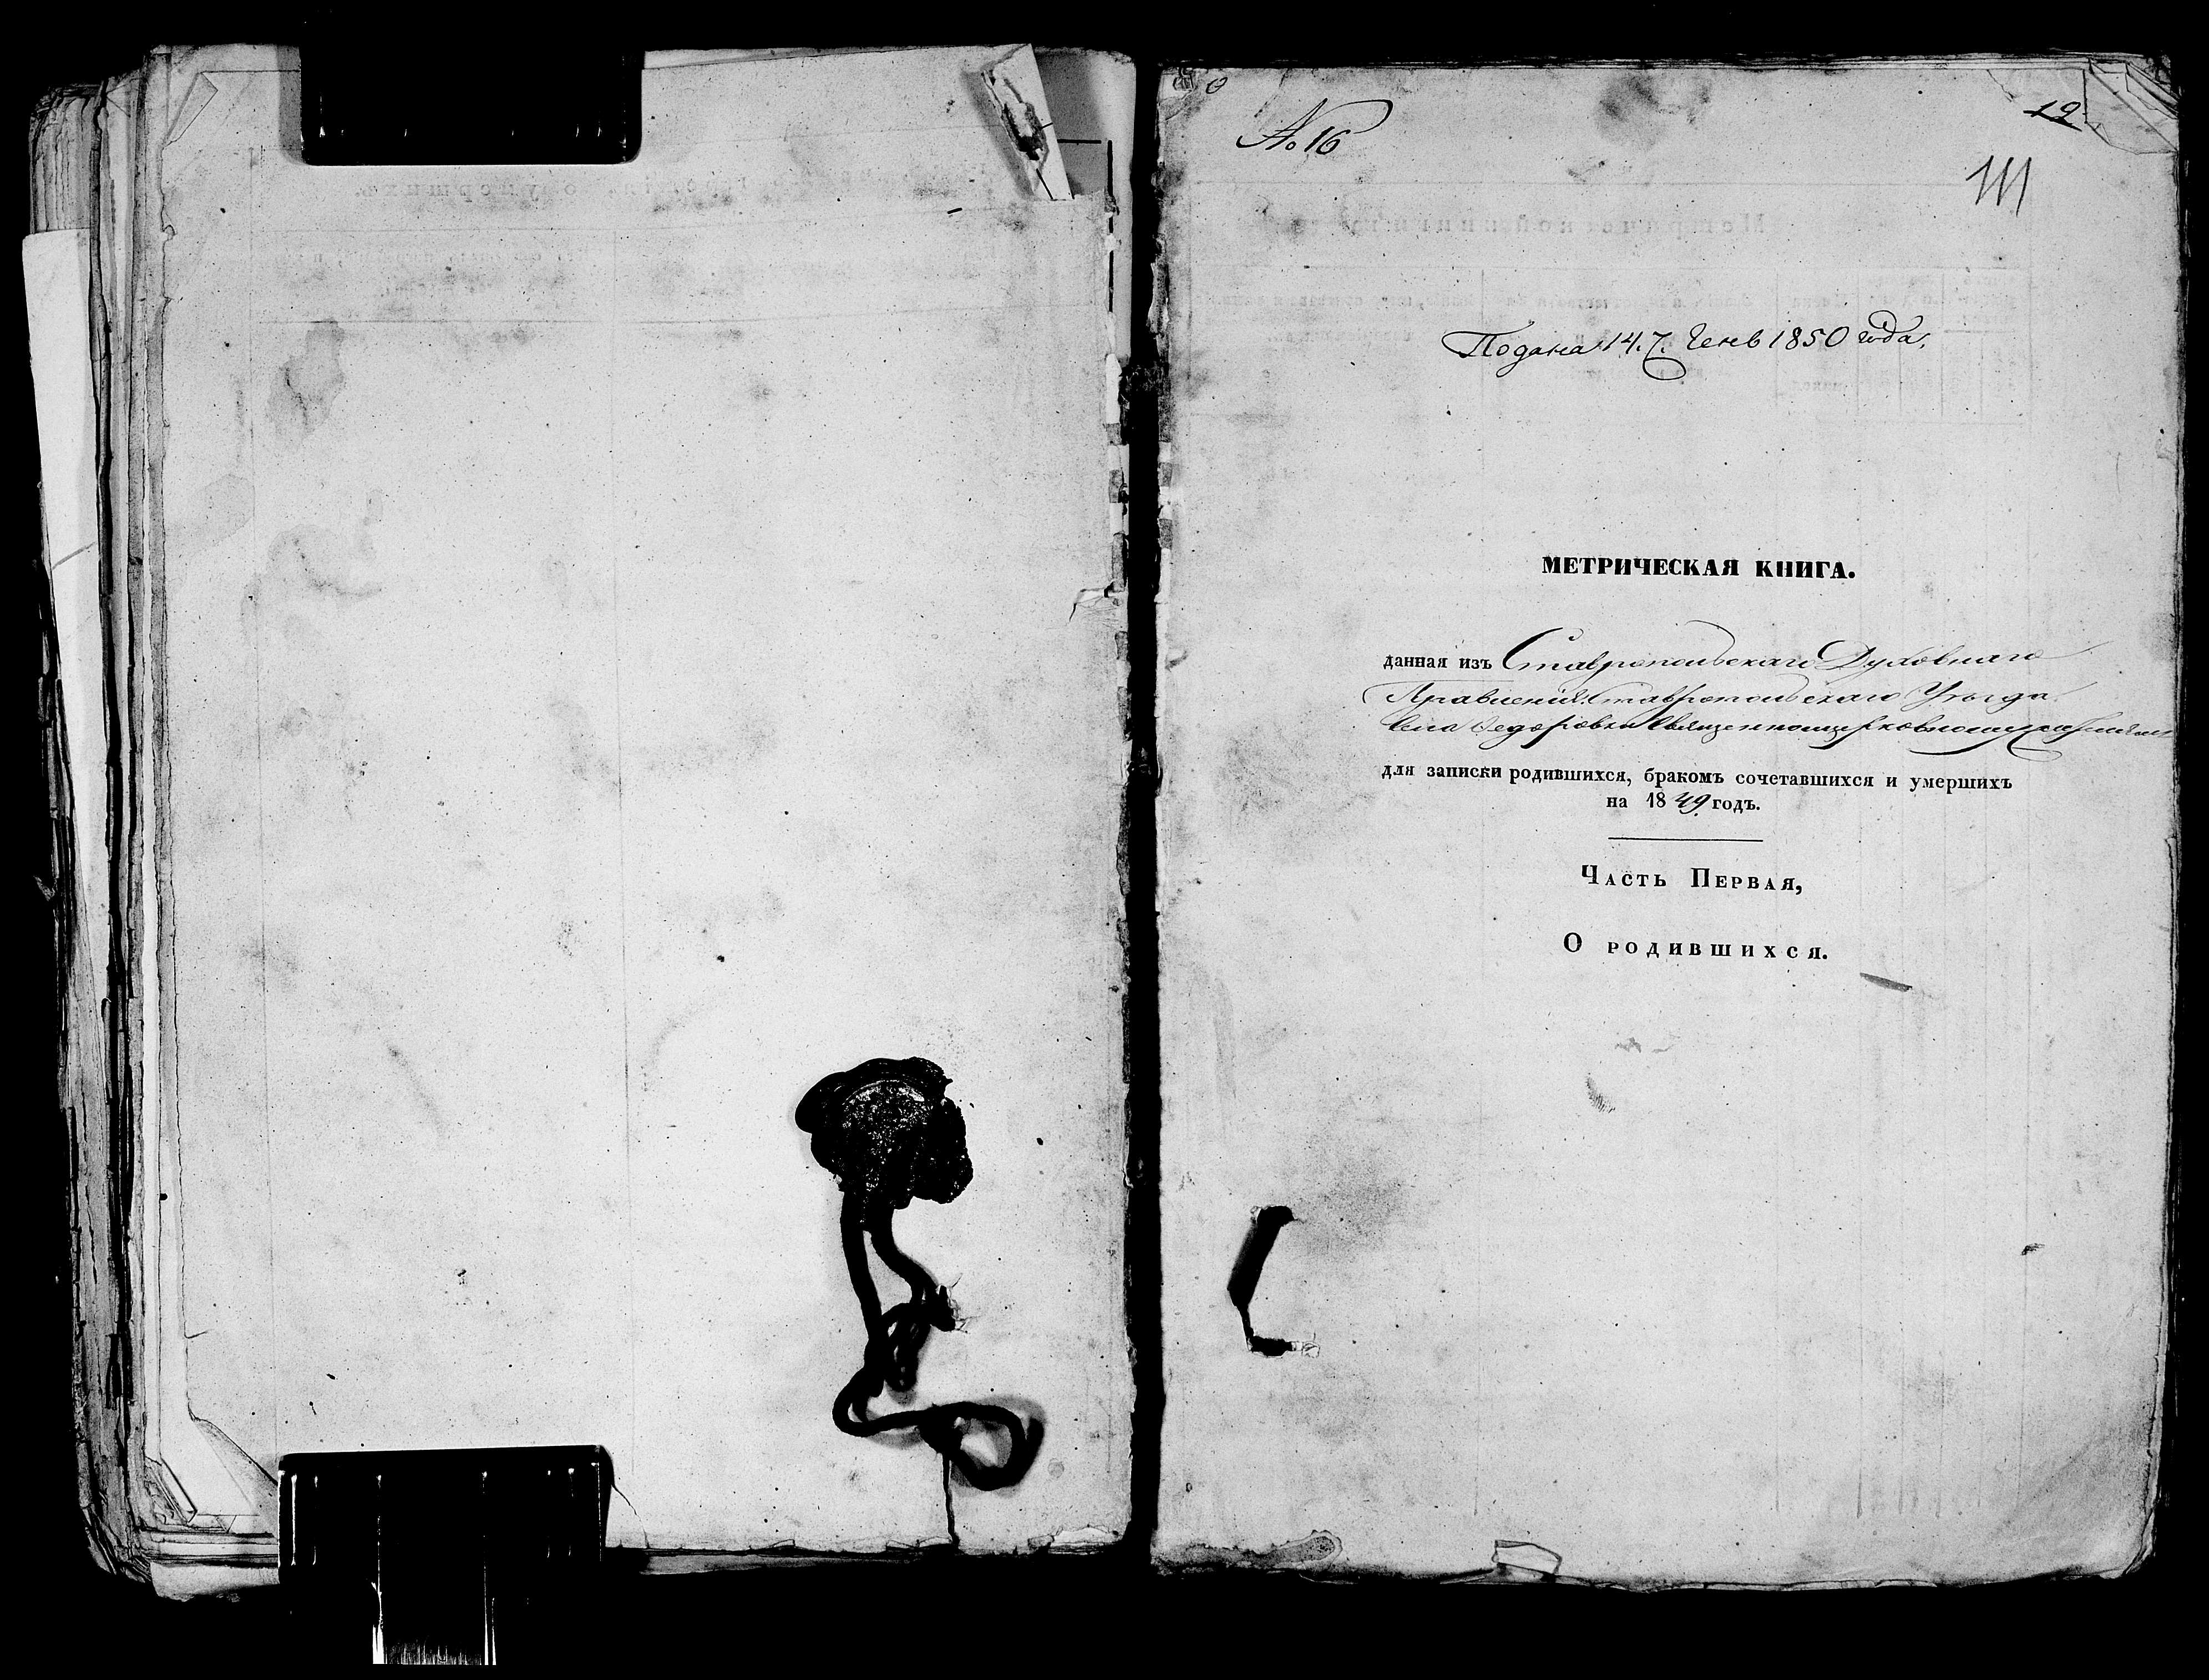 № 16
19
111
Подана 14. Генв 1850 года.
МЕТРИЧЕСКАЯ КНИГА.
данная изъ Ставропольскаго Духовнаго
Правленія Ставропольскаго Уѣзда
села Федоровки Священноцерковнослужителямъ
для записки родившихся, бракомъ сочетавшихся и умершихъ
на 1849 годъ.
Часть Первая,
О родившихся.